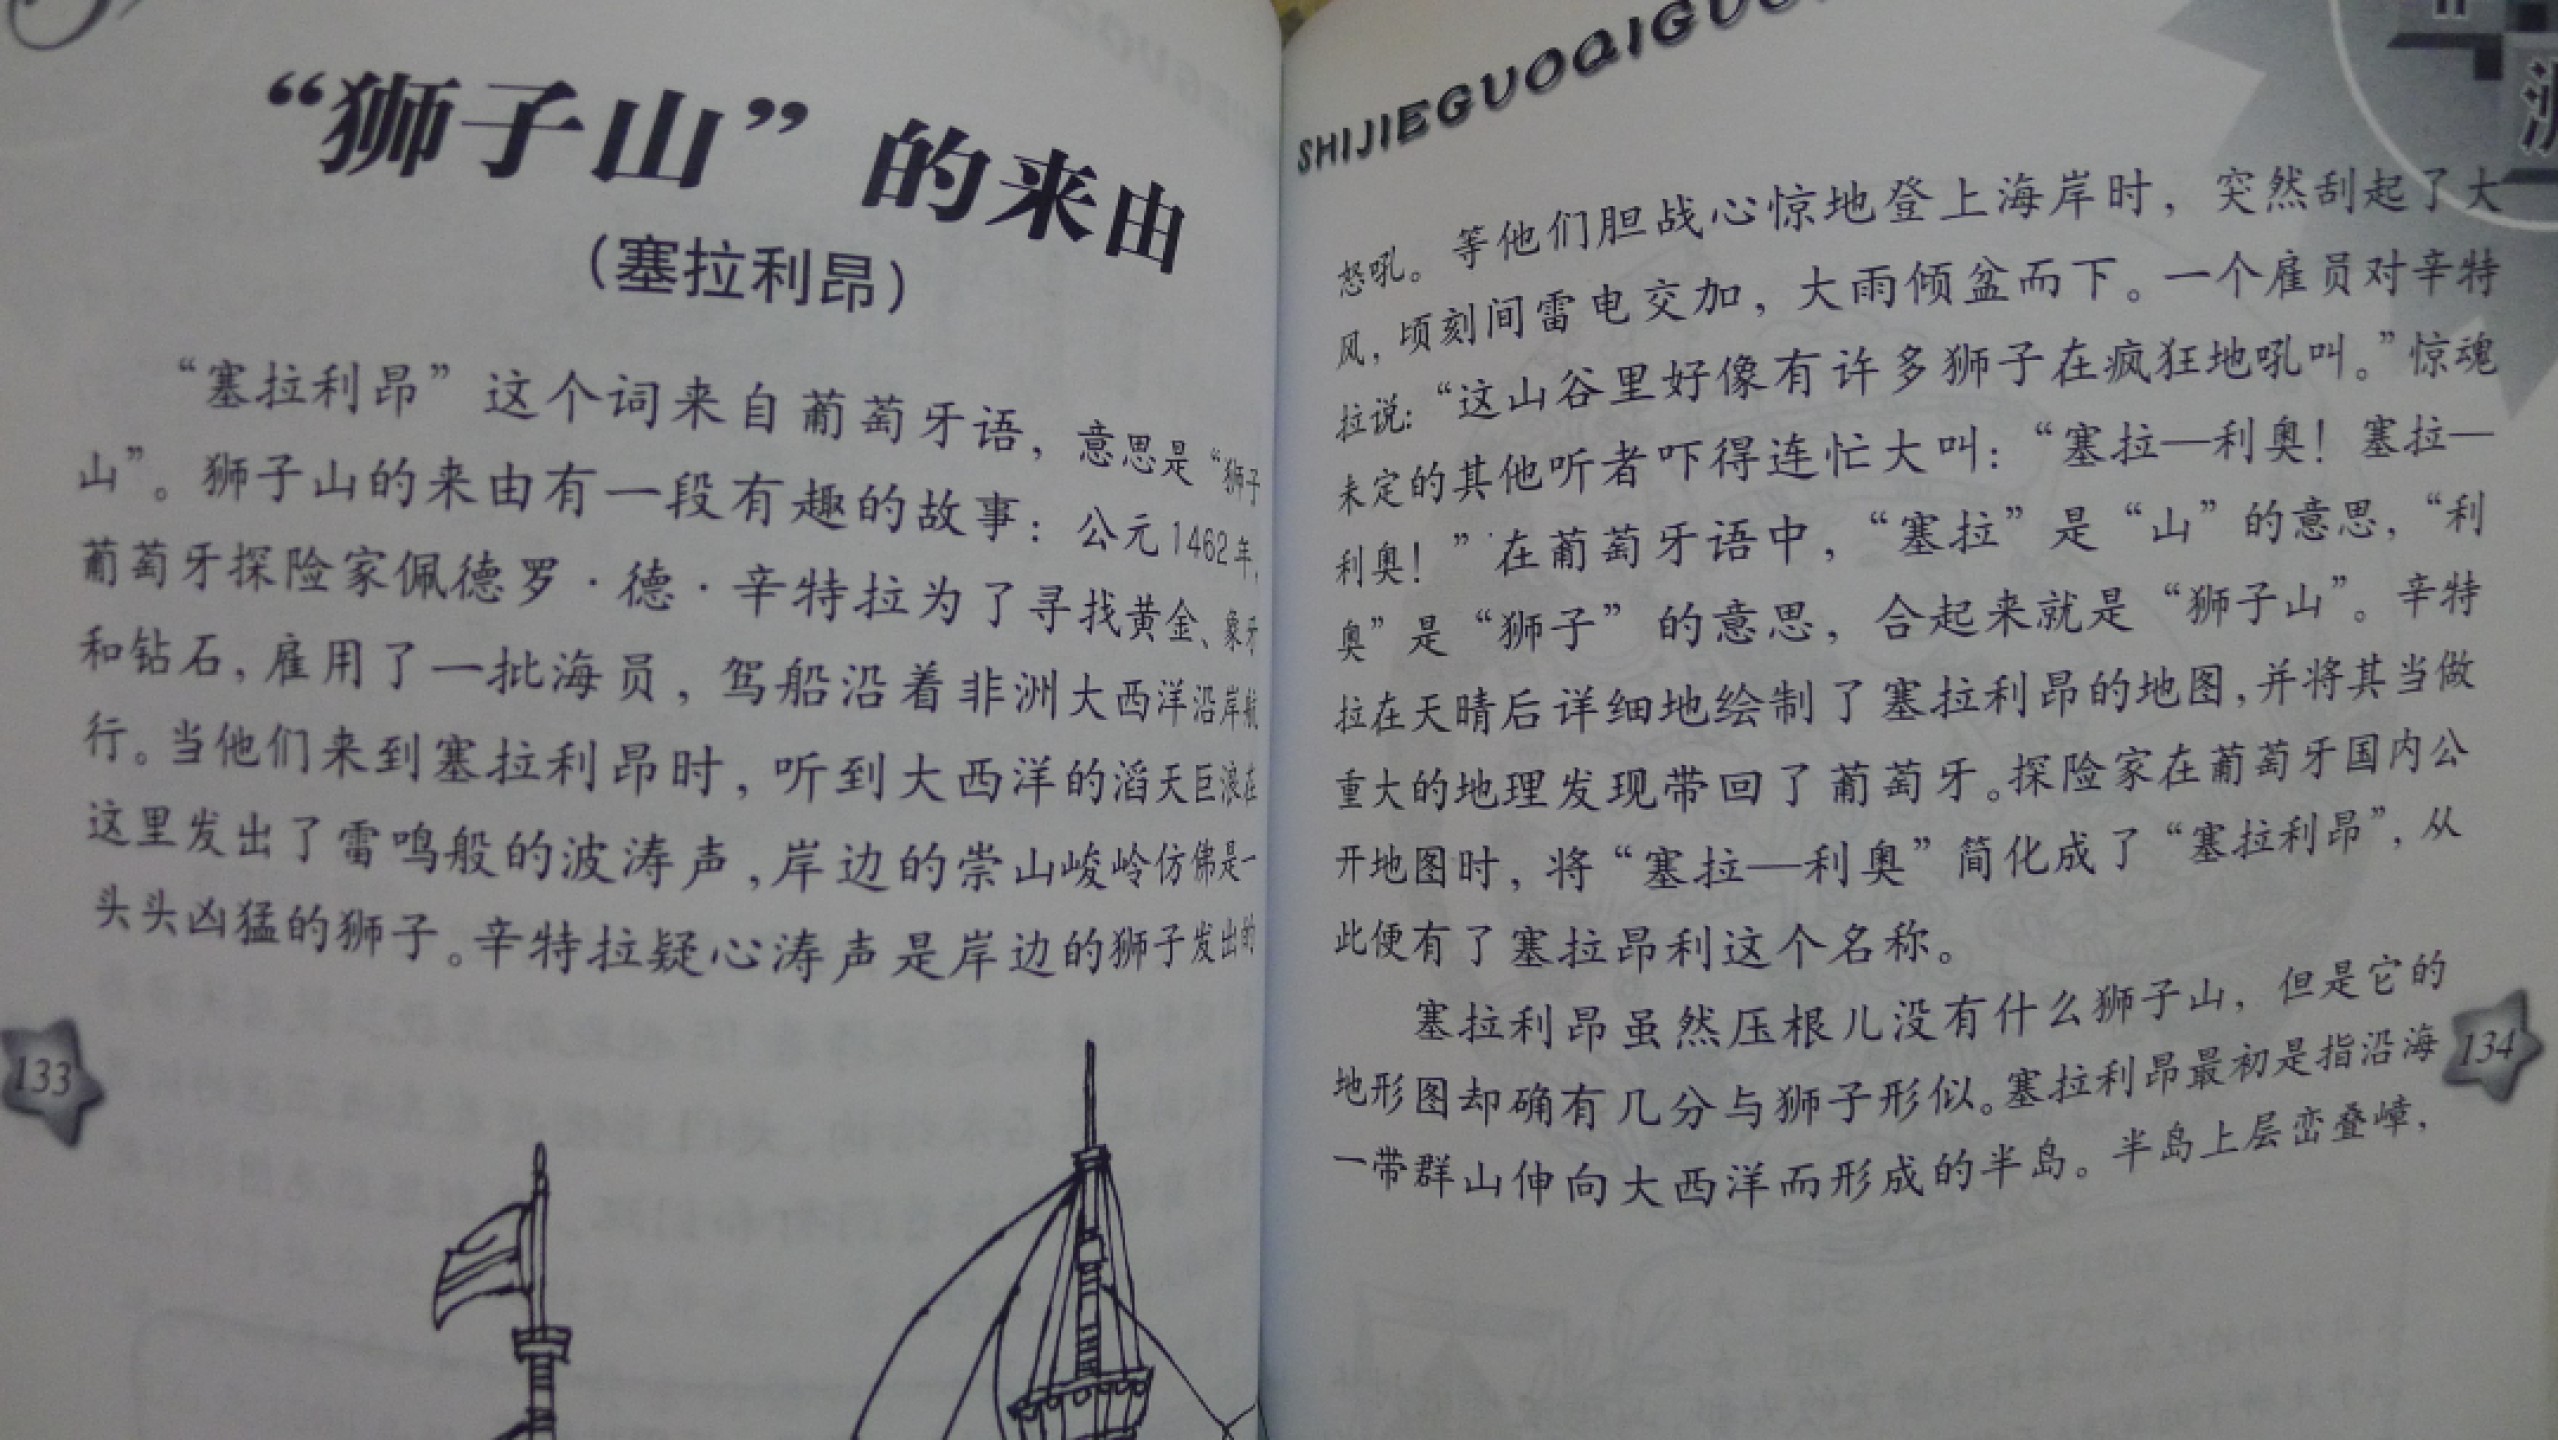 “狮子山”的来由
（塞拉利昂）
“塞拉利昂”这个词来自葡萄牙语，意思是“狮子
山”。狮子山的来由有一段有趣的故事：公元1462年，
葡萄牙探险家佩德罗·德·辛特拉为了寻找黄金、象牙
和钻石，雇用了一批海员，驾船沿着非洲大西洋沿岸航
行。当他们来到塞拉利昂时，听到大西洋的滔天巨浪在
这里发出了雷鸣般的波涛声，岸边的崇山峻岭仿佛是一
头头凶猛的狮子。辛特拉疑心涛声是岸边的狮子发出的
133
SHIJIEGUOQIGU
怒吼。等他们胆战心惊地登上海岸时，突然刮起了大
风，顷刻间雷电交加，大雨倾盆而下。一个雇员对辛特
拉说：“这山谷里好像有许多狮子在疯狂地吼叫。”惊魂
未定的其他听者吓得连忙大叫：“塞拉—利奥！塞拉—
利奥！”在葡萄牙语中，“塞拉”是“山”的意思，“利
奥”是“狮子”的意思，合起来就是“狮子山”。辛特
拉在天晴后详细地绘制了塞拉利昂的地图，并将其当做
重大的地理发现带回了葡萄牙。探险家在葡萄牙国内公
开地图时，将“塞拉—利奥”简化成了“塞拉利昂”，从
此便有了塞拉昂利这个名称。
塞拉利昂虽然压根儿没有什么狮子山，但是它的
地形图却确有几分与狮子形似。塞拉利昂最初是指沿海
一带群山伸向大西洋而形成的半岛。半岛上层峦叠嶂，
134